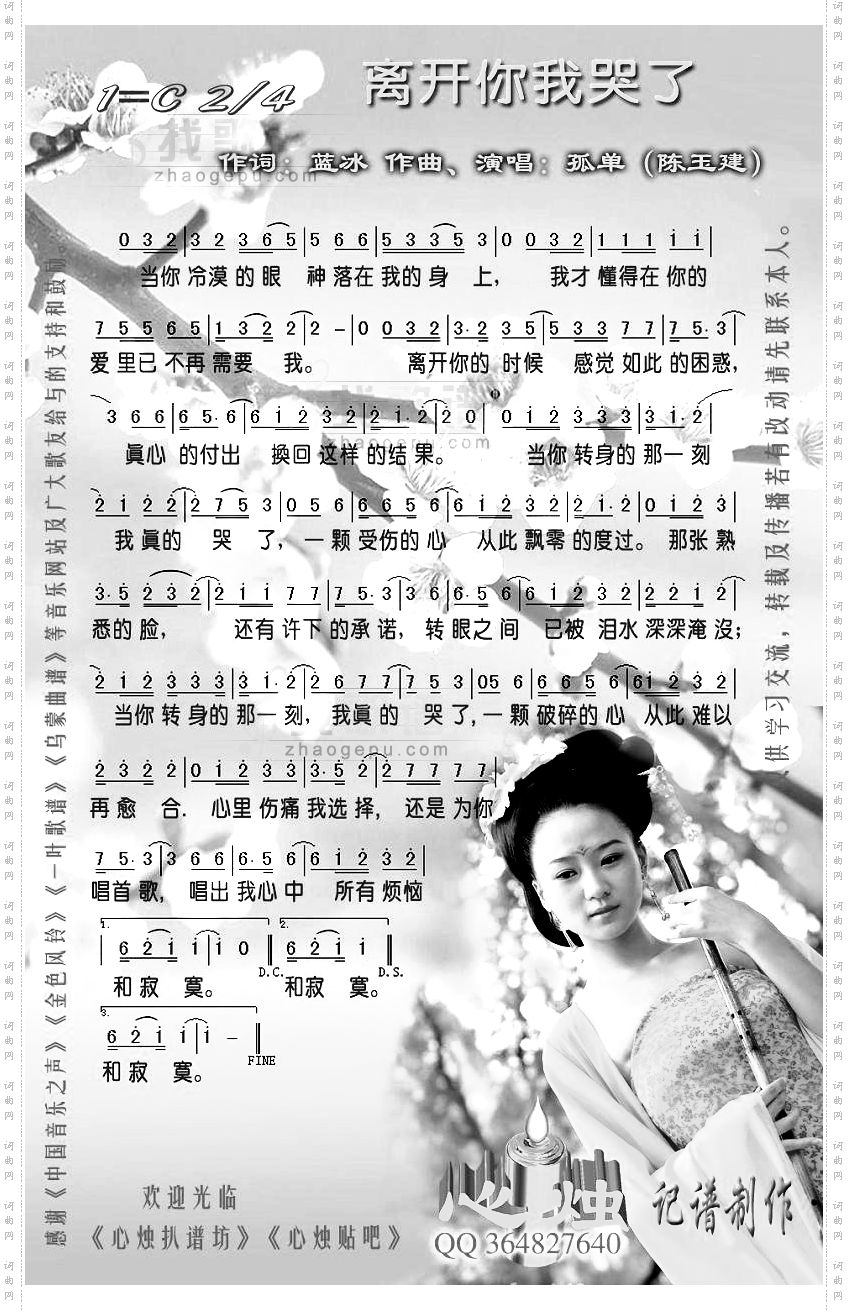 离开你我哭了
1=C 2/4
作词：蓝冰 作曲、演唱：孤单（陈玉建）
找歌
zhaogepu.com
0 3 2 | 3 2 3 6 5 | 5 6 6 | 5 3 3 5 3 | 0 0 3 2 | 1 1 1 i i |
当你 冷漠 的 眼 神 落 在 我 的 身 上， 我才 懂得在 你的
7 5 5 6 5 | 1 3 2 2 | 2 - | 0 0 3 2 | 3· 2 3 5 | 5 3 3 7 7 | 7 5· 3 |
爱 里已 不再 需要 我。 离开你的 时候 感觉 如此 的 困惑，
3 6 6 | 6 5· 6 | 6 i 2 3 2 | 2 i· 2 | 2 0 | 0 i 2 3 3 3 | 3 i· 2 |
真心 的付出 换回 这样 的 结 果。 当你 转身的 那一 刻
zhaogepu.com
2 i 2 2 | 2 7 5 3 | 0 5 6 | 6 6 5 6 | 6 i 2 3 2 | 2 i· 2 | 0 i 2 3 |
我 真的 哭 了，一 颗 受伤的 心 从此 飘零 的 度过。 那张 熟
3· 5 2 3 2 | 2 i i 7 7 | 7 5· 3 | 3 6 6 5 6 | 6 i 2 3 2 | 2 2 i 2 |
悉的 脸， 还有 许下 的承 诺，转 眼之 间 已被 泪水 深深淹 没；
2 i 2 3 3 3 | 3 i· 2 | 2 6 7 7 | 7 5 3 | 05 6 | 6 6 5 6 | 6i 2 3 |
当你 转 身的 那一 刻，我真 的 哭 了，一 颗 破碎的 心 从此 难以
zhaogepu.com
2 3 2 2 | 0 i 2 3 3 | 3· 5 2 | 2 7 7 7 7 |
再 愈 合. 心里 伤痛 我 选 择， 还是 为你
7 5· 3 | 3 6 6 | 6· 5 6 | 6 i 2 3 2 |
唱首 歌， 唱出 我心 中 所有 烦恼
1. 2.
6 2 i i | i 0 6 2 i i |
D.C. D.S.
和 寂 寞。 和 寂 寞。
3.
6 2 i i | i -
FINE
和 寂 寞。
感谢《中国音乐之声》《金色风铃》《一叶歌谱》《乌蒙曲谱》等音乐网站及广大歌友给与的支持和鼓励。
供学习交流，转载及传播若有改动请先联系本人。
欢迎光临
《心烛扒谱坊》《心烛贴吧》
心烛 记谱制作
QQ 364827640
词曲网